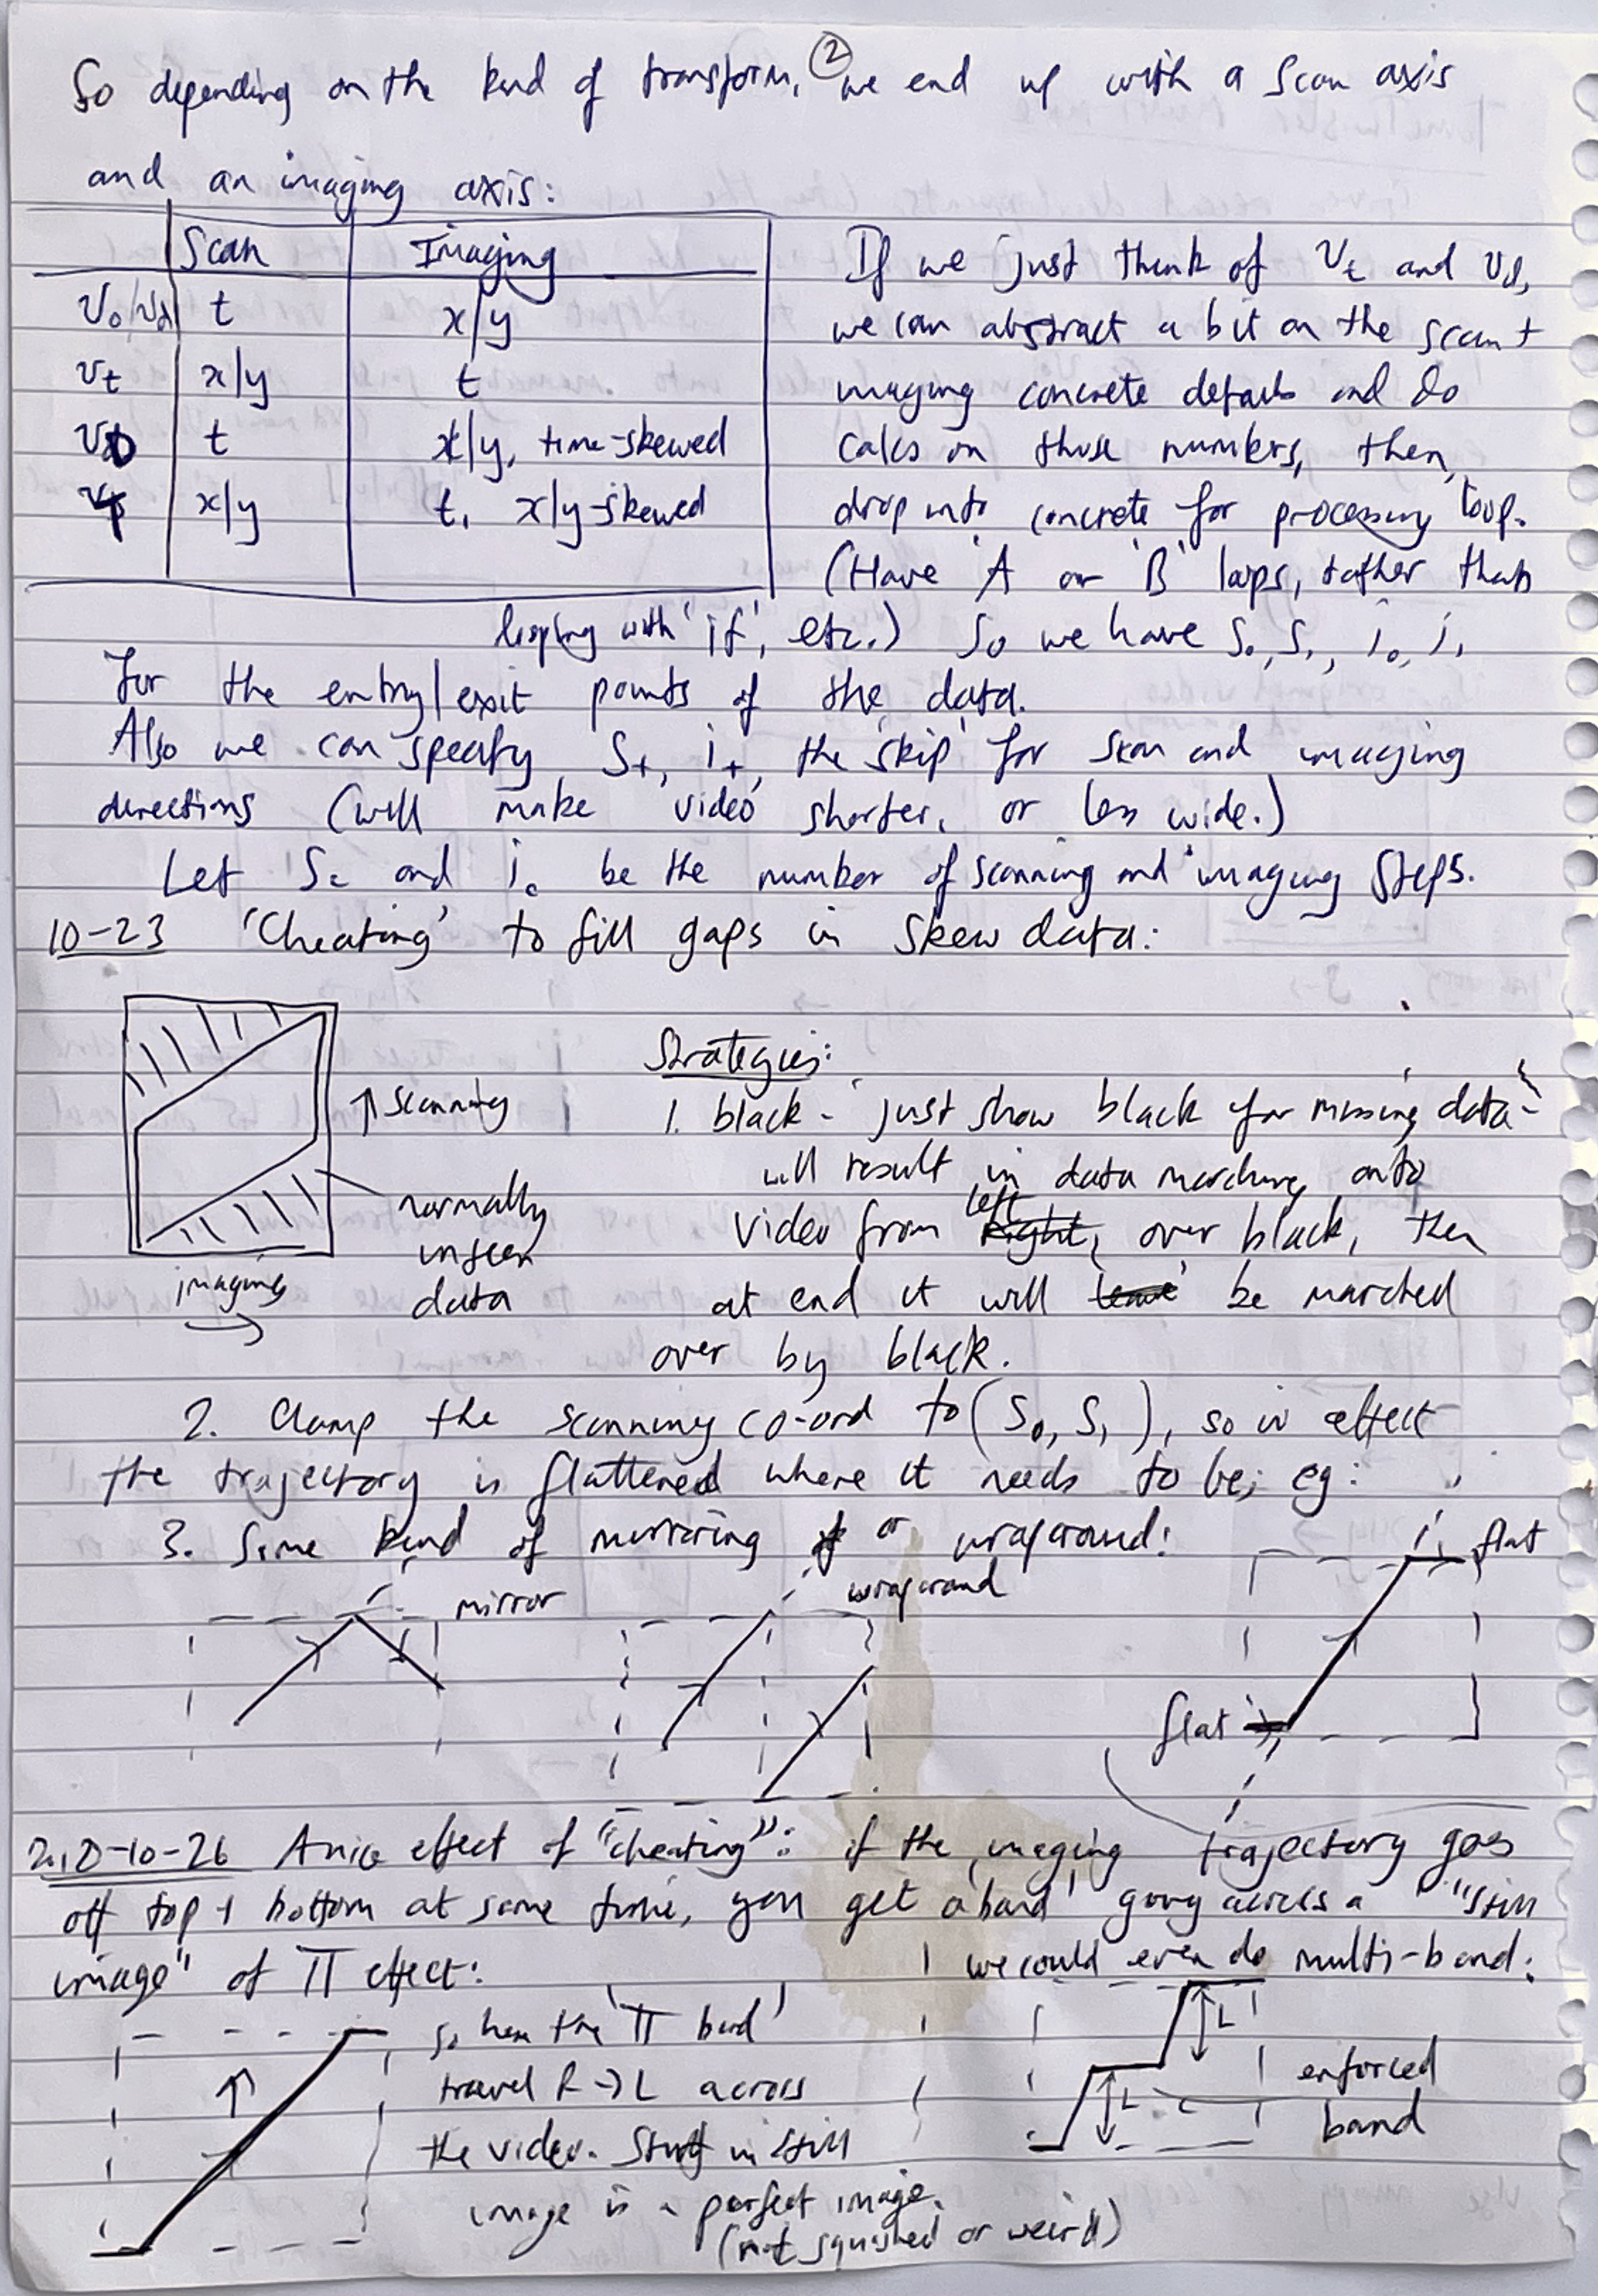 ②
So depending on the kind of transform, we end up with a scan axis
and an imaging axis:
Scan Imaging
V₀/Vd t x/y
Vt x/y t
t x/y, time-skewed
x/y t, x/y-skewed
If we just think of Vt and Vd,
we can abstract a bit on the scan +
imaging concrete details and do
calcs on those numbers, then
drop into concrete for processing loop.
(Have 'A' or 'B' loops, rather than
looping with 'if', etc.) So we have S₀, S₁, i₀, i₁
for the entry/exit points of the data.
Also we can specify S₊, i₊, the 'skip' for scan and imaging
directions (will make 'video' shorter, or less wide.)
Let Sc and ic be the number of scanning and imaging steps.
10-23 'Cheating' to fill gaps in skew data:
↑ scanning
normally
unseen
data
imaging
→
Strategies:
1. black - just show black for missing data -
will result in data marching onto
video from right left, over black, then
at end it will leave be marched
over by black.
2. Clamp the scanning co-ord to (S₀, S₁), so in effect
the trajectory is flattened where it needs to be; eg:
3. Some kind of mirroring or wraparound:
flat
mirror
wraparound
flat
2010-10-26 A nice effect of "cheating": if the imaging trajectory goes
off top + bottom at same time, you get a 'band' going across a "still
image" of TT effect:
we could even do multi-band:
so here the 'TT band'
travel R→L across
the video. Stuff in still
image is a perfect image.
(not squished or weird)
L
L
enforced
band